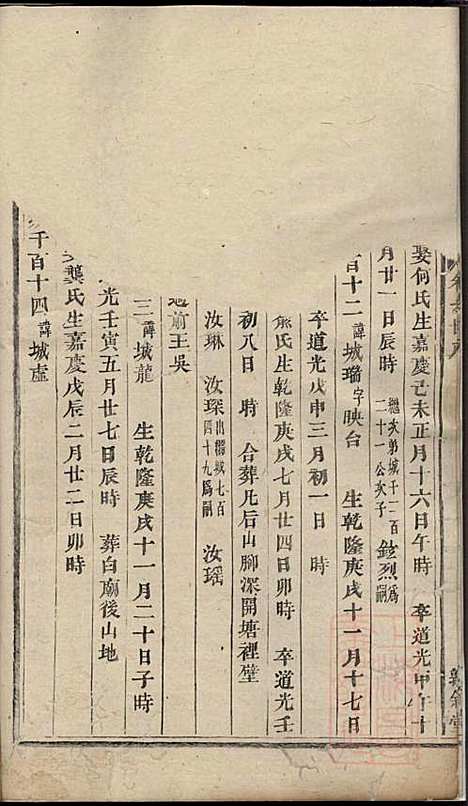 娶何氏生嘉慶己未正月十六日午時 卒道光甲午十
月廿一日辰時 繼次弟城千二百二十一公次子 鈫烈為嗣
百十二 諱城璠字映台 生乾隆庚戌十一月十七日
卒道光戊申三月初一日 時
熊氏生乾隆庚戌七月廿四日卯時 卒道光壬
初八日 時 合葬凡后山腳深開塘裡壁
汝琳 汝琛出繼城七百四十九為嗣 汝瑤
前王吳
三 諱城龍 生乾隆庚戌十一月二十日子時
光壬寅五月廿七日辰時 葬白廟後山地
龔氏生嘉慶戊辰二月廿二日卯時
千百十四 諱城虛